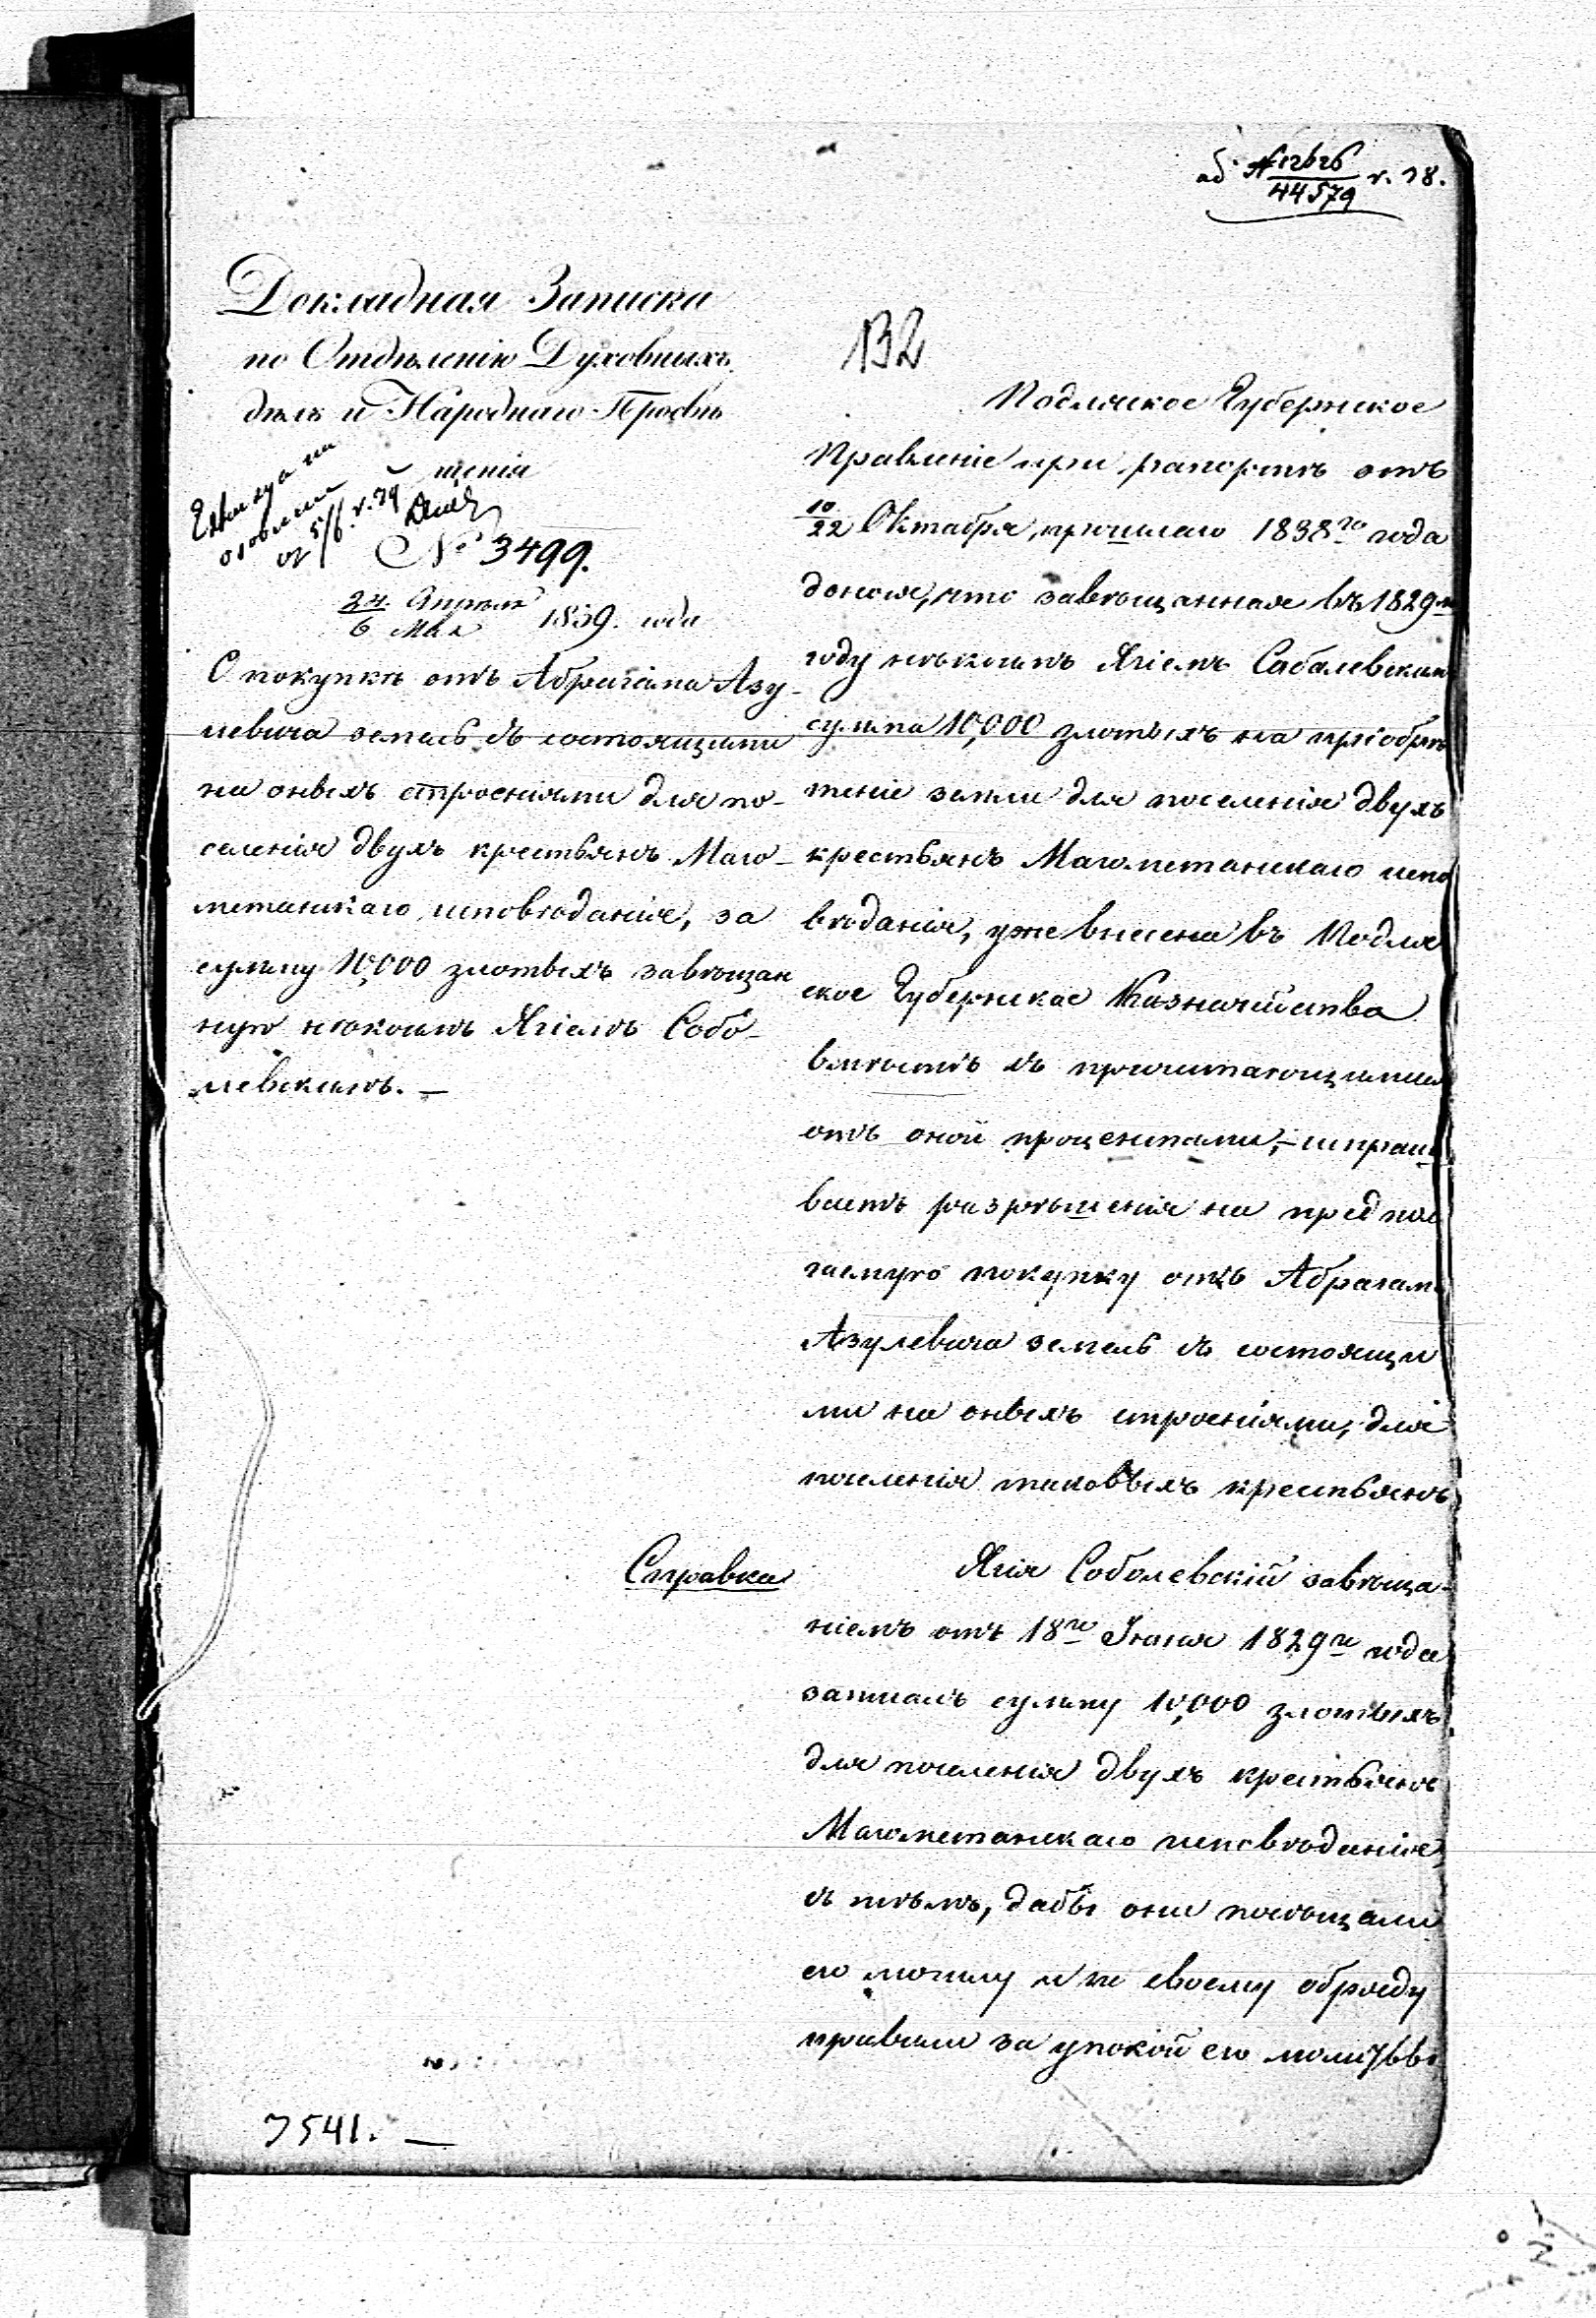 ad № 12626/44579 r. 38.
Докладная Записка
по Отдѣленію Духовныхъ
дѣлъ и Народнаго Просвѣ
щенія
5/6 r. 39
№ 3499.
24 Апрѣля / 6 Мая 1839. года
О покупкѣ отъ Абрагама Азу-
левича земель съ состоящими
на оныхъ строеніями для по-
селенія двухъ крестьянъ Маго-
метанскаго исповѣданія, за
сумму 10,000 злотыхъ завѣщан
ную нѣкоимъ Ягіемъ Собо-
левскимъ. —
132
Подляское Губернское
Правленіе при рапортѣ отъ
10/22 Октября, прошлаго 1838го года
донося, что завѣщанная въ 1829м
году нѣкоимъ Ягіемъ Соболевским
сумма 10,000 злотыхъ на пріобрѣ
теніе земли для поселенія двухъ
крестьянъ Магометанскаго испо
вѣданія, уже внесена въ Подля
ское Губернское Казначейство
вмѣстѣ съ причитающимися
отъ оной процентами, – испраши
ваетъ разрѣшенія на предпола
гаемую покупку отъ Абрагама
Азулевича земель съ состоящи
ми на оныхъ строеніями, для
поселенія таковыхъ крестьянъ
Справка
Ягія Соболевскій завѣща-
ніемъ отъ 18го Іюня 1829го года
записалъ сумму 10,000 злотыхъ
для поселенія двухъ крестьянъ
Магометанскаго исповѣданія,
съ тѣмъ, дабы они посѣщали
его могилу и по своему обряду
правили за упокой его молитвы
3541. —